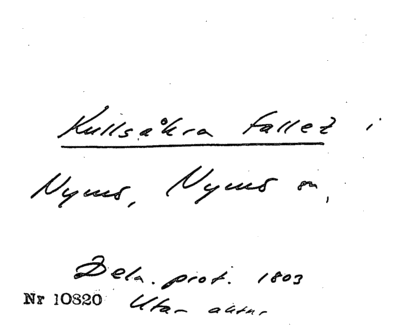 Kullsåkra fallet i
Nymö, Nymö sn,
Deln. prot. 1803
Nr 10820 Utan